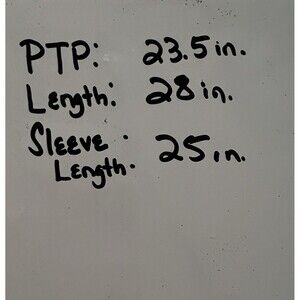 PTP: 23.5in.
Length: 28in.
Sleeve
Length: 25in.